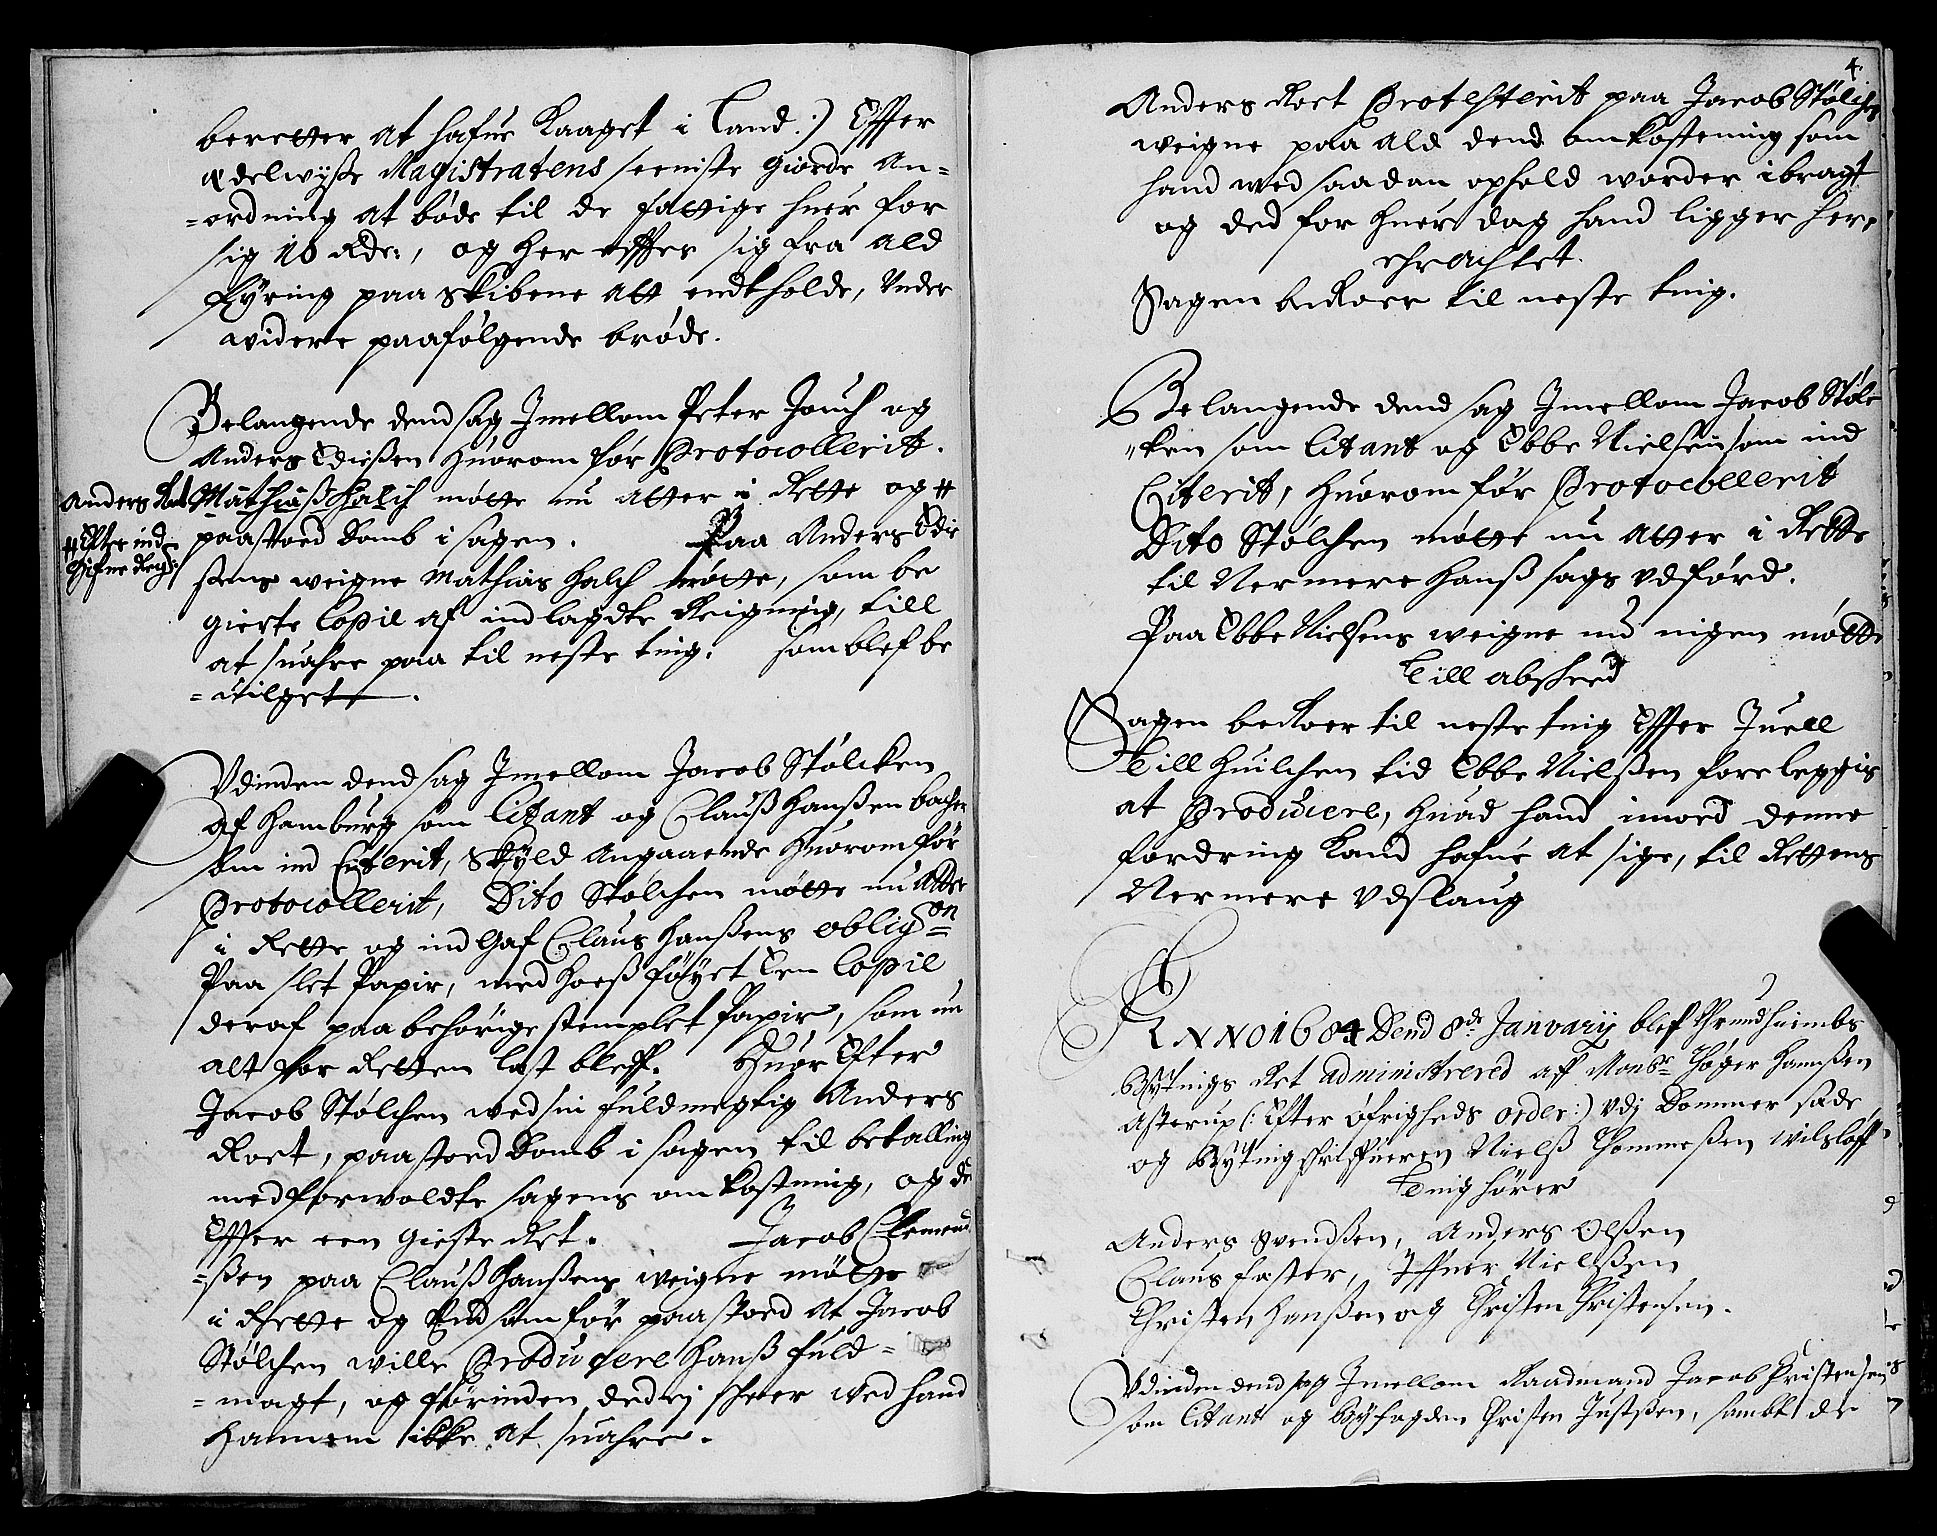 beretter at hafue Kaaget i Land.) Effter
Ædelwyße Magistratens seeniste giorde An-
-ordning at bøde til de fattige huer for
sig 10 Rdr:, og her effter sig fra ald
Kyring paa Skibene att endtholde, Under
widere paafølgende brøde.
Belangende dend sag Imellom Peter Jouch og
Anders Edießen huorom før Protocollerit.
Anders Roet Mathias Halch møtte nu atter i Rette og #
# Efter ind
gifne Regn:
paastoed Domb i sagen. Paa Anders Edie
ßens weigne Mathias Halch møtte, som be
gierte Copie af indlagdte Reigning, till
at suahre paa til neste ting. Som blef be
-uilget.
Udinden dend sag Imellom Jacob Stølcken
af Hamburg som Citant og Clauß Hanßen bacher
som ind Citerit, Skyld angaaende huorom før
Protocollerit, Dito Stølchen møtte nu atter
i Rette og ind Gaf Claus Hanßens oblig:on
Paa slet Papir, med hoesføyet Een Copie
deraf paa behørige stemplet Papir, som nu
alt for Retten læst bleff. Huor Efter
Jacob Stølchen wed sin fuldmegtig Anders
Roet, paastoed Domb i sagen til betalling
med forwoldte sagens omkostning, og d
Effter een gieste Ret. Jacob Clemend
-ßen paa Clauß Hanßens weigne møtte
i Rette og End som før paastoed at Jacob
Stølchen wille Producere Hanß fuld-
-magt, og førinden ded ej skeer wed hand
hannem ikke at suahre.
4.
Anders Roet Protesterit paa Jacob Stølchens
weigne paa ald dend omkostening som
hand wed saadan ophold worder ibragt
og ded for huer dag hand ligger her
ehrachtet.
Sagen beRoer til neste ting.
Belangende dend sag Imellom Jacob Støl
"ken som Citant og Ebbe Nielsen som ind
Citerit, huorom før Protocollerit
Dito Stølchen møtte nu atter i Rette
til Nermere Hanß sags Udførd.
Paa Ebbe Nielsens weigne nu ingen møtte
Till absheed
Sagen beRoer til neste ting Effter Juell
Till huilchen tid Ebbe Nielßen foreleggis
at Producere, huad hand imod denne
fordring Kand hafue at sige, til Rettens
Nermere Udslaug
ANNO 1684 Dend 8de Janvarij blef Thrundhiembs
Bytings Ret administrered af Monsr Høger Hanßen
Asterup (: Efter Øfrigheds order:) Udj Dommer sæde
og Bytingskriffueren Nielß Thommeßen Wilsløff
Tinghører
Anders Svendßen, Anders Olßen
Claus Faster, Iffuer Nielßen
Christen Hanßen og Christen Christensen.
Udinden dend sag Imellom Raadmand Jacob Christensen
som Citant og Byfogden Christen Justßen, sambt de